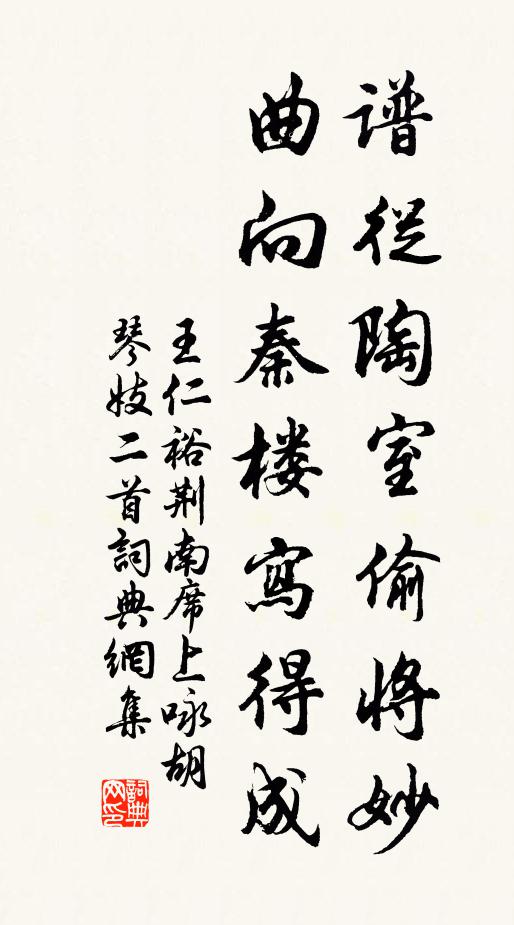 谱從陶室偷將妙
曲向秦楼寫得成
王仁裕荆南席上咏胡
琴妓二首詞典網集
詞典
网印